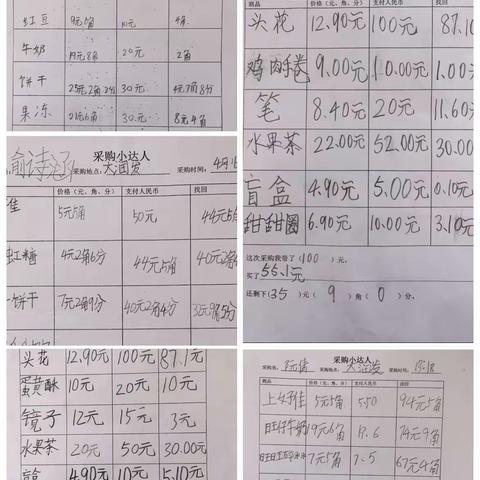 红豆 9元6角 10元 4角
牛奶 20元 2角
饼干 25元2角2分 30元 4元7角8分
果冻 21元6角 30元 8元4角
商品 价格（元、角、分） 支付人民币 找回
头花 12.90元 100元 87.10
鸡肉手卷 9.00元 10.00元 1.00元
笔 8.40元 20元 11.60元
水果茶 22.00元 52.00元 30.00元
盲盒 4.90元 5.00元 0.10元
甜甜圈 6.90元 10.00元 3.10元
这次采购我带了（100）元，
买了55.1元
还剩下（35）元（9）角（0）分。
采购小达人
俞诗涵 采购地点：大润发 采购时间：4月16
价格（元、角、分） 支付人民币 找回
佳 5元5角 50元 44元5角
虹糖 4元2角6分 44元5角 40元2角
饼干 7元2角9分 40元2角4分
头花 12.90元 100元 87.1元
蛋黄酥 10元 20元 10元
镜子 12元 15元 3元
水果茶 20元 50元 30.00元
盲盒 4.90元 10元 5.10元
采购小达人
采购地点：大润发 采购时间：
商品 价格（元、角、分） 支付人民币 找回
上好佳 5元5角 5.50 94元5角
旺仔牛奶 19元6角 74元9角
7元5角 7.5 67元4角